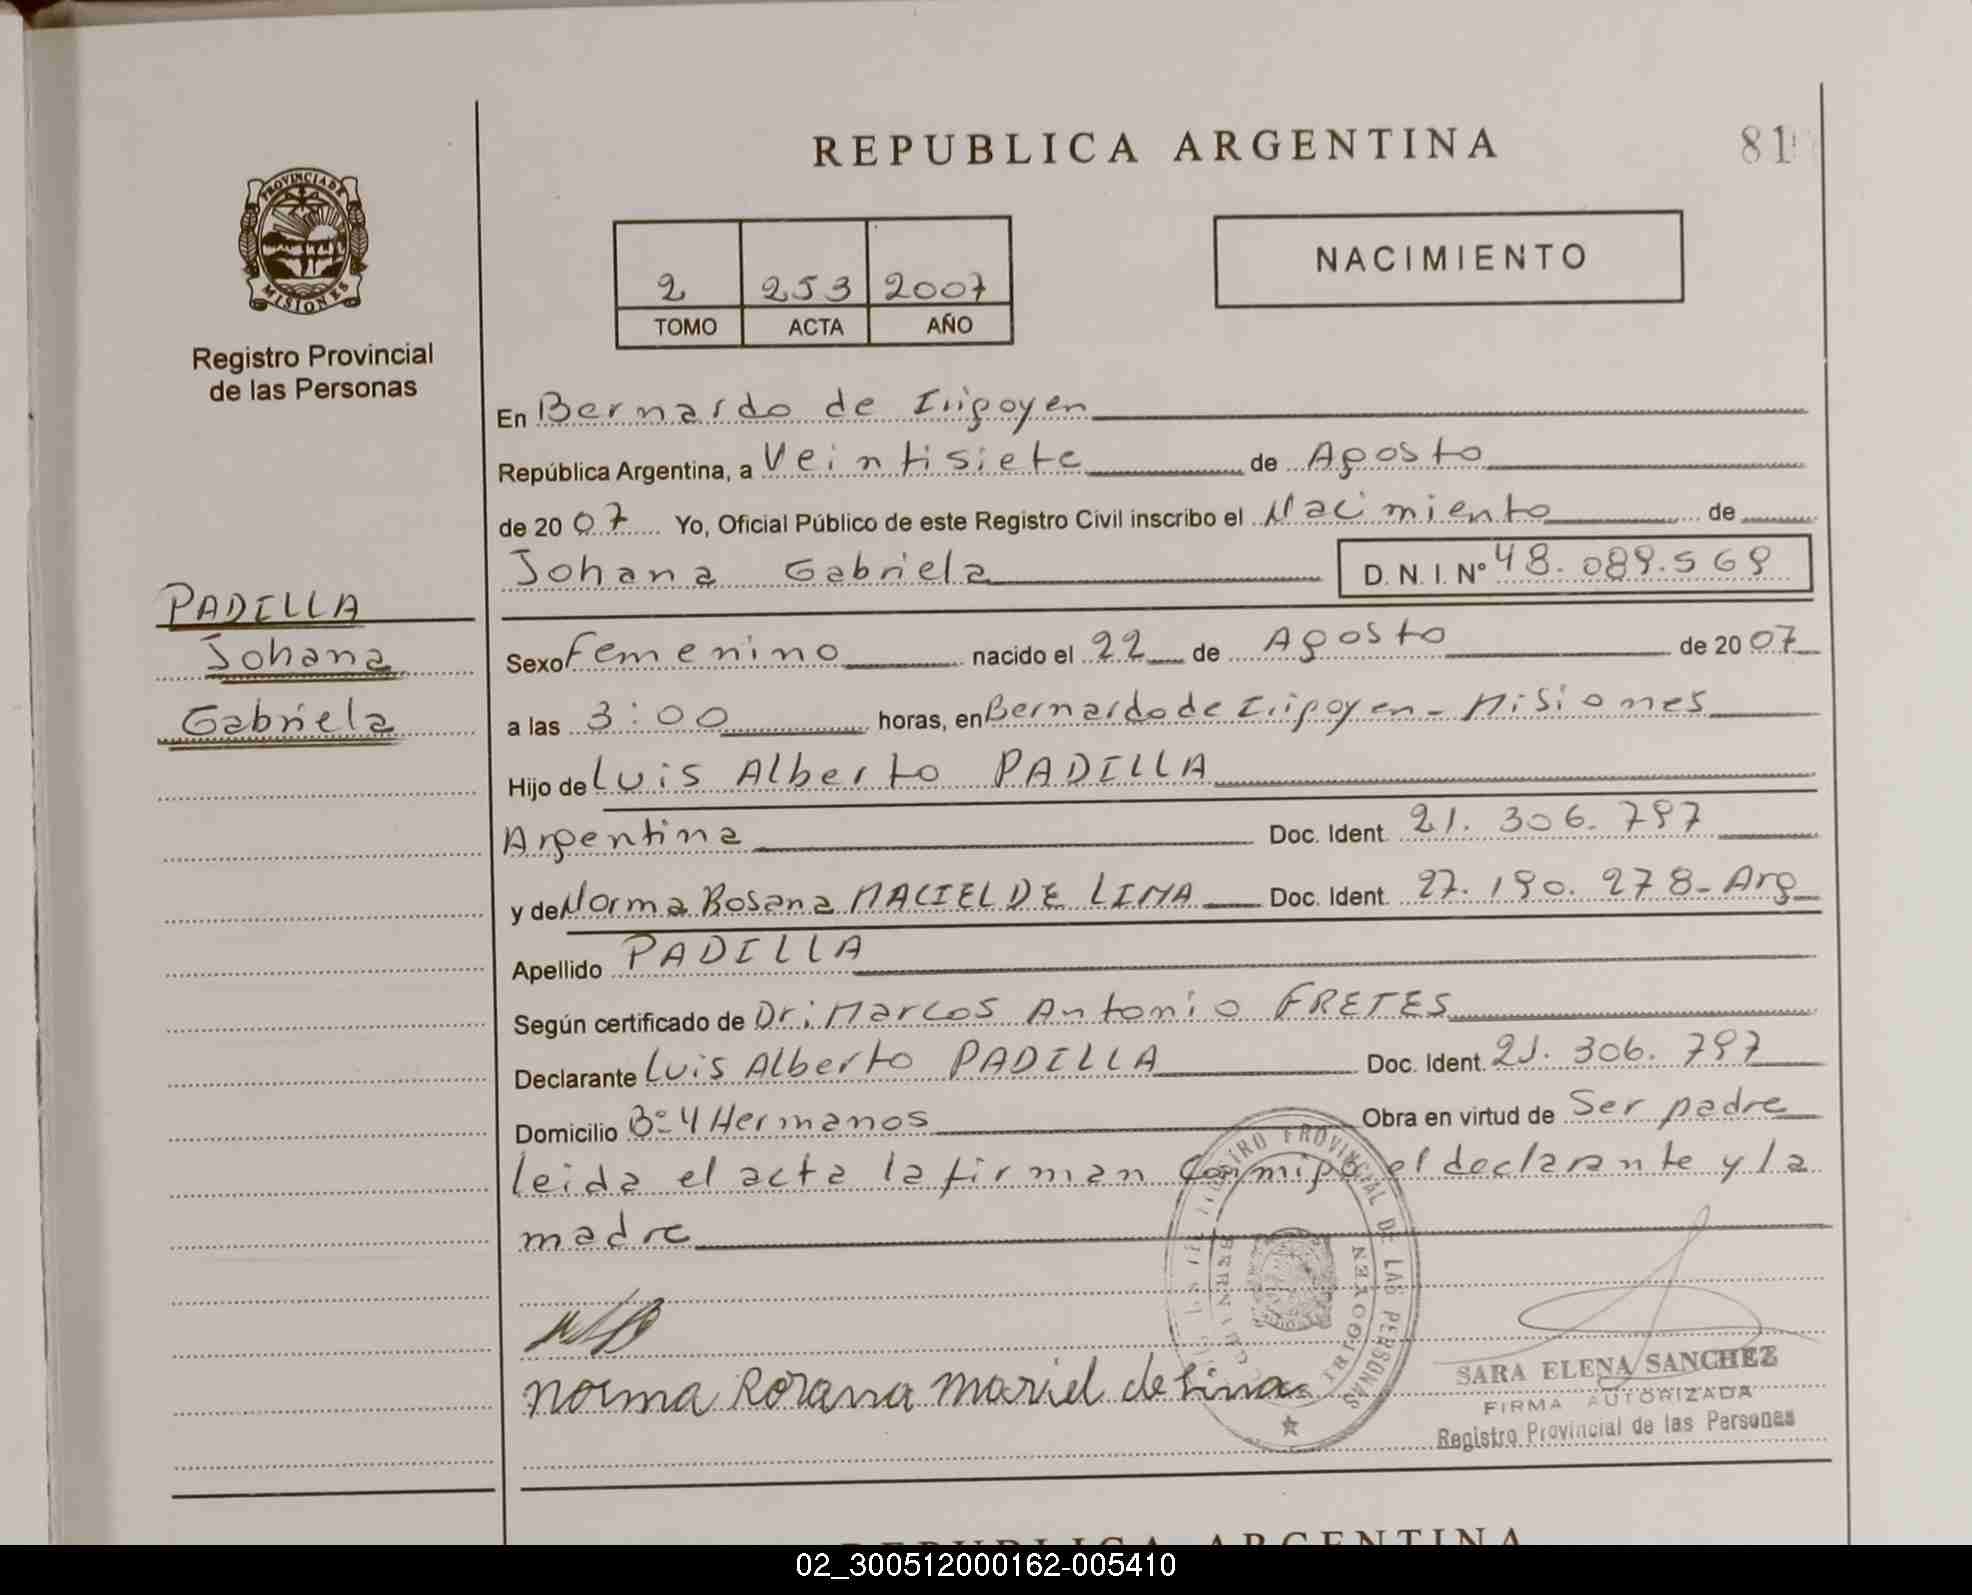 REPUBLICA ARGENTINA
81
PROVINCIA DE
MISIONES
Registro Provincial
de las Personas
2 253 2007
TOMO ACTA AÑO
NACIMIENTO
En Bernardo de Irigoyen
República Argentina, a Veintisiete de Agosto
de 2007 Yo, Oficial Público de este Registro Civil inscribo el Nacimiento de
Johana Gabriela D. N. I. Nº 48.089.569
PADILLA
Johana
Gabriela
Sexo Femenino nacido el 22 de Agosto de 2007
a las 3:00 horas, en Bernardo de Irigoyen - Misiones
Hijo de Luis Alberto PADILLA
Argentina Doc. Ident. 21.306.797
y de Norma Rosana MACIEL DE LIMA Doc. Ident. 27.190.278 - Arg
Apellido PADILLA
Según certificado de Dr: Marcos Antonio FRETES
Declarante Luis Alberto PADILLA Doc. Ident. 21.306.797
Domicilio Bº 4 Hermanos Obra en virtud de Ser padre
leida el acta la firman conmigo el declarante y la
madre
REGISTRO PROVINCIAL DE LAS PERSONAS
IRIGOYEN
norma Rosana mariel de lima
SARA ELENA SANCHEZ
FIRMA AUTORIZADA
Registro Provincial de las Personas
REPUBLICA ARGENTINA
02_300512000162-005410